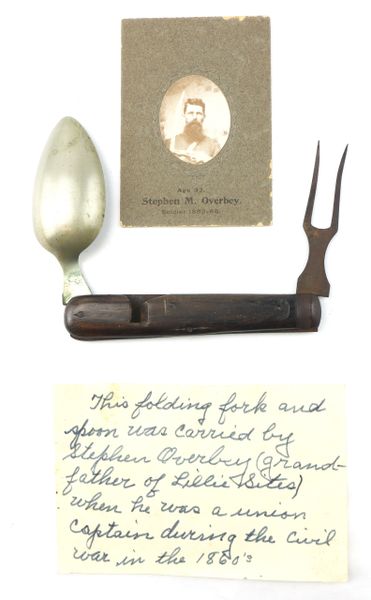 Age 32.
Stephen M. Overbey.
Soldier 1863-65.
This folding fork and
spoon was carried by
Stephen Overbey (grand-
father of Lillie Sites)
when he was a union
captain during the Civil
war in the 1860's